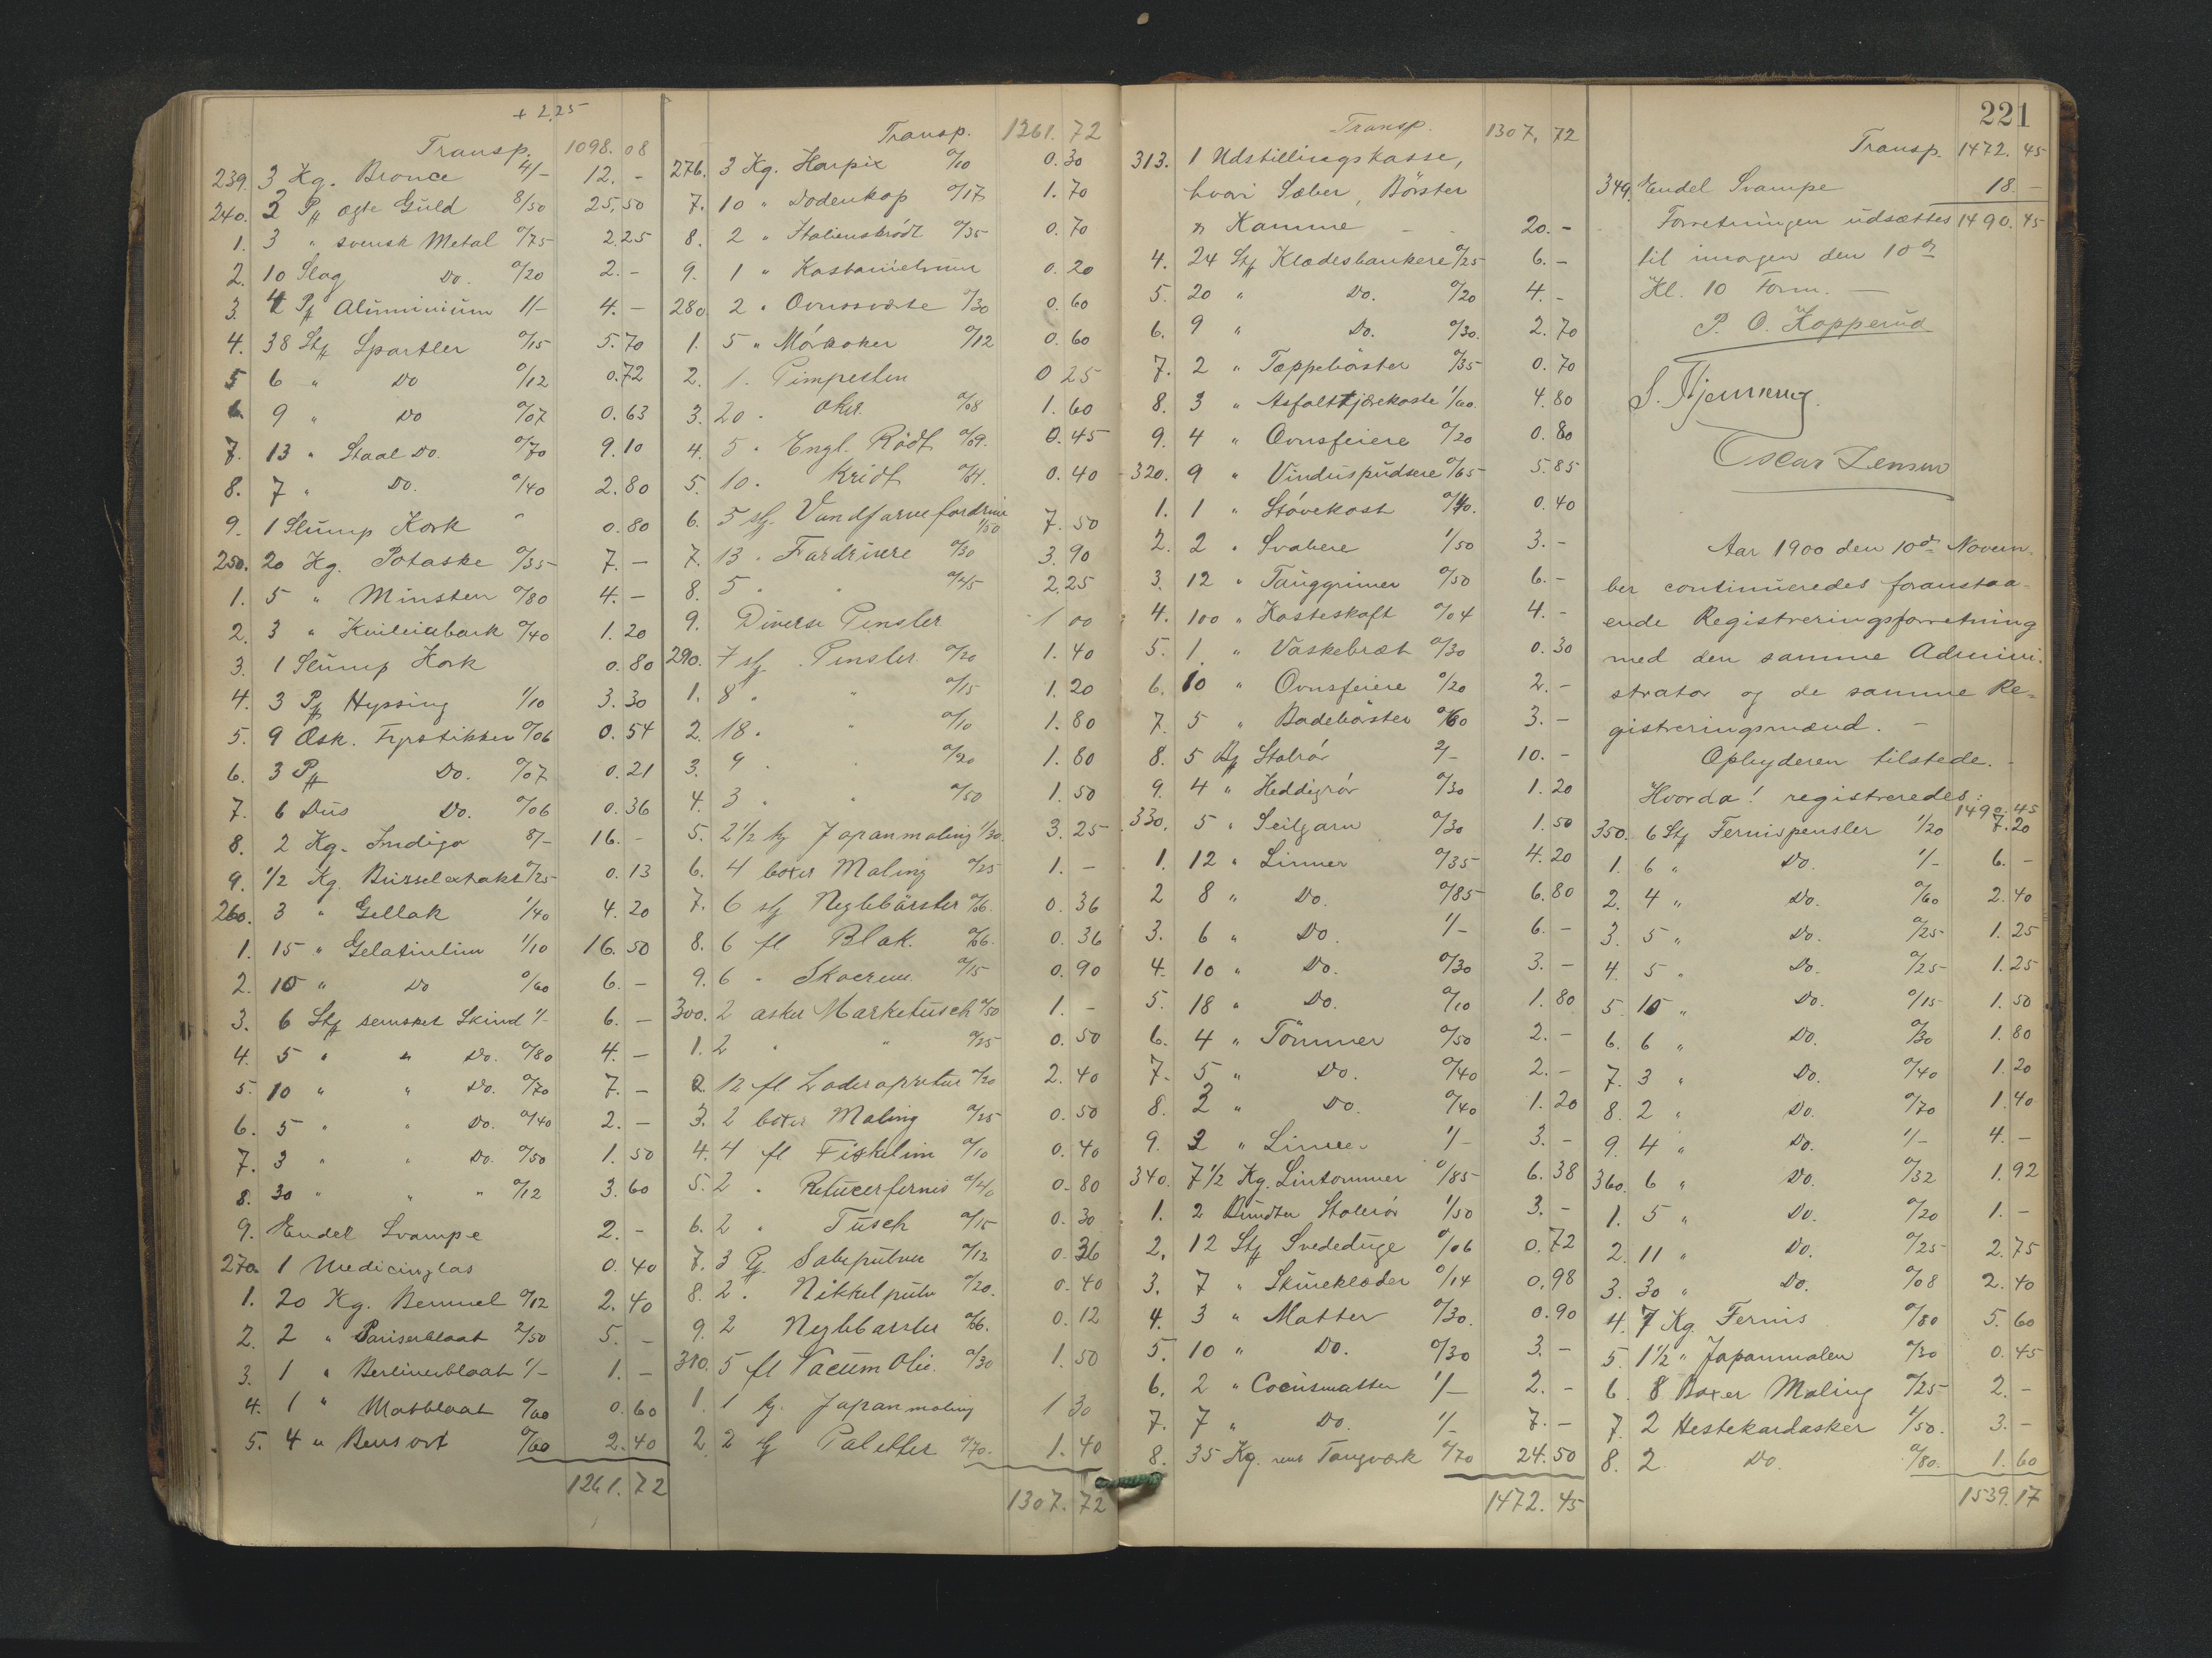 + 2.25
Transp. 1098.08
239. 3 Kg. Bronce 4/- 12. -
240. 3 Pk ægte Guld 8/50 25.50
1. 3 " svensk Metal 0/75 2.25
2. 10 Slag Do. 0/20 2. -
3. 4 Pk Aluminium 1/- 4. -
4. 38 Stk Spartler 0/15 5.70
5 6 " Do 0/12 0.72
6. 9 " Do 0/07 0.63
7. 13 " Staal Do. 0/70 9.10
8. 7 " Do. 0/40 2.80
9. 1 Slump Kork " 0.80
250. 20 Kg. Potaske 0/35 7. -
1. 5 " Minsten 0/80 4. -
2. 3 " 0/40 1.20
3. 1 Slump Kork 0.80
4. 3 Pk Hyssing 1/10 3.30
5. 9 Æsk. Fyrstikker 0/06 0.54
6. 3 Pk Do. 0/07 0.21
7. 6 Dus Do. 0/06 0.36
8. 2 Kg. Indigo 8/- 16. -
9. 1/2 Kg. 0/25 0.13
260. 3 " Gellak 1/40 4.20
1. 15 " Gelatinlim 1/10 16.50
2. 10 " Do 0/60 6. -
3. 6 Stk semsket Skind 1/- 6. -
4. 5 " " Do. 0/80 4. -
5. 10 " " Do. 0/70 7. -
6. 5 " " Do. 0/40 2. -
7. 3 " " Do. 0/50 1.50
8. 30 " " " 0/12 3.60
9. Endel Svampe 2. -
270. 1 Medicinglas 0.40
1. 20 Kg. 0/12 2.40
2. 2 " Pariserblaat 2/50 5. -
3. 1 " Berlinerblaat 1/- 1. -
4. 1 " Matblaat 0/60 0.60
5. 4 " Bensort 0/60 2.40
1261.72
Transp. 1261.72
276. 3 Kg. Harpix 0/10 0.30
7. 10 " Dodenkop 0/17 1.70
8. 2 " Italienskrödt 0/35 0.70
9. 1 " 0.20
280. 2 " Ovnssværte 0/30 0.60
1. 5 " 0/12 0.60
2. 1. Pimpesten 0 25
3. 20 " oker 0/08 1.60
4. 5 " Engl. Rödt 0/09. 0.45
5. 10. Kridt 0/4. 0.40
6. 5 stk. Vandfarvefordriver 1/50 7.50
7. 13 " Fordrivere 0/30 3.90
8. 5 " " 0/45 2.25
9. Diverse Pensler 1 00
290. 7 stk. Pensler 0/20 1.40
1. 8 " " 0/15 1.20
2. 18 " " 0/10 1.80
3. 9 " " 0/20 1.80
4. 3 " " 0/50 1.50
5. 2 1/2 kg Japanmaling 1/30. 3.25
6. 4 boxer Maling 0/25 1. -
7. 6 stk Neglebörster 0/06. 0.36
8. 6 fl Blæk. 0/06. 0.36
9. 6 " Skocreme 0/15 0.90
300. 2 æsker Marketusch 0/50 1. -
1. 2 " " 0/25 0.50
2. 12 fl Læderapretur 0/20 2.40
3. 2 boxer Maling 0/25 0.50
4. 4 fl Fiskelim 0/10 0.40
5. 2 " Retucerfernis 0/40 0.80
6. 2 " Tusch 0/15 0.30
7. 3 Pk. Sølvpulver 0/12 0.36
8. 2. Nikkelpulv 0/20. 0.40
9. 2 Neglebørster 0/06. 0.12
310. 5 fl Vacum Olie. 0/30 1.50
1. 1 kg. Japanmaling 1 30
2 2 stk Paletter 0/70. 1.40
1307.72
Transp. 1307.72
313. 1 Udstillingskasse,
hvori Sæber, Börster
og Kamme - - 20. -
4. 24 Stk Klædesbankere 0/25 6. -
5. 20 " Do. 0/20 4. -
6. 9 " Do. 0/30. 2.70
7. 2 " Tæppebörster 0/35 0.70
8. 3 " Asfalttjærekoste 1/60. 4.80
9. 4 " Ovnsfeiere 0/20 0.80
320. 9 " Vinduspudsere 0/65 5.85
1. 1 " Stövekost 0/40. 0.40
2. 2 " Svabere 1/50 3. -
3. 12 " Tauggrimer 0/50 6. -
4. 100 " Kosteskaft 0/04 4. -
5. 1 " Vaskebræt 0/30 0.30
6. 10 " Ovnsfeiere 0/20 2. -
7. 5 " Badebörster 0/60 3. -
8. 5 Stolrör 2/- 10. -
9. 4 " Heddigrör 0/30 1.20
330. 5 " Seilgarn 0/30 1.50
1. 12 " Linner 0/35 4.20
2 8 " Do. 0/85 6.80
3. 6 " Do. 1/- 6. -
4. 10 " Do. 0/30 3. -
5. 18 " Do. 0/10 1.80
6. 4 " Tömmer 0/50 2. -
7. 5 " Do. 0/40 2. -
8. 3 " Do. 0/40 1.20
9. 3 " Linner 1/- 3. -
340. 7 1/2 Kg. Lintømmer 0/85 6.38
1. 2 Bundter Stolerör 1/50 3. -
2. 12 Stk Svededuge 0/06 0.72
3. 7 " Skurekloder 0/14 0.98
4. 3 " Matter 0/30. 0.90
5. 10 " Do. 0/30 3. -
6. 2 " Cocusmatter 1/- 2. -
7. 7 " Do. 1/- 7. -
8. 35 Kg. Taugværk 0/70 24.50
1472.45
221
Transp. 1472.45
349. Endel Svampe 18. -
Forretningen udsættes 1490.45
til imorgen den 10de
Kl. 10 Form. -
P. O. Kopperud
Oscar Jensen
Aar 1900 den 10de Novem-
ber continueredes foranstaa-
ende Registreringsforretning
med den samme Admini-
strator og de samme Re-
gistreringsmænd. -
Opbyderen tilstede. -
Hvorda! registreredes:
1490.45
350. 6 Stk Fernispensler 1/20 7.20
1. 6 " Do. 1/- 6. -
2. 4 " Do. 0/60 2.40
3. 5 " Do. 0/25 1.25
4. 5 " Do. 0/25 1.25
5. 10 " Do. 0/15 1.50
6. 6 " Do. 0/30 1.80
7. 3 " Do. 0/40 1.20
8. 2 " Do. 0/70 1.40
9. 4 " Do. 1/- 4. -
360. 6 " Do. 0/32 1.92
1. 5 " Do. 0/20 1. -
2. 11 " Do. 0/25 2.75
3. 30 " Do. 0/08 2.40
4. 7 Kg. Fernis 0/80 5.60
5. 1 1/2 " Japanmalen 0/30 0.45
6. 8 Boxer Maling 0/25 2. -
7. 2 Hestekardasker 1/50. 3. -
8. 2 Do. 0/80. 1.60
1539.17